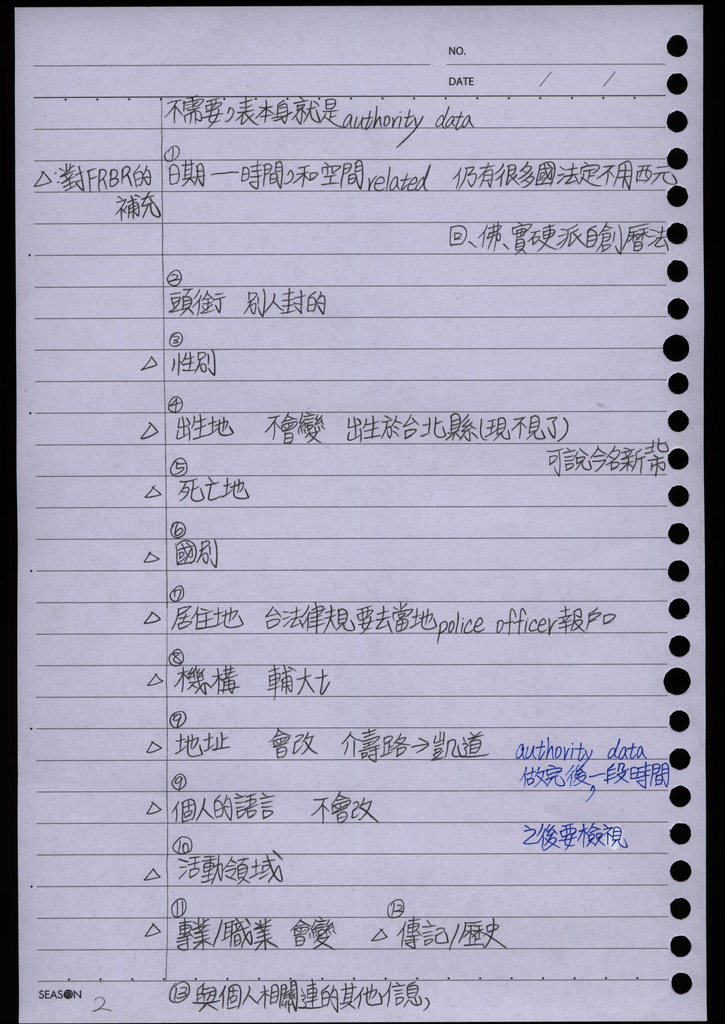 NO.
DATE / /
不需要,表本身就是authority data
①
△對FRBR的 日期—時間,和空間related 仍有很多國法定不用西元
補充
回、佛、實硬派自創曆法
②
頭銜 別人封的
③
△ 性別
④
△ 出生地 不會變 出生於台北縣(現不見了)
可說今名新北市
⑤
△ 死亡地
⑥
△ 國別
⑦
△ 居住地 台法律規要去當地police officer報戶口
⑧
△ 機構 輔大
⑨
△ 地址 會改 介壽路→凱道 authority data
做完後,一段時間
⑨
△ 個人的語言 不會改
之後要檢視
⑩
△ 活動領域
⑪ ⑫
△ 專業/職業 會變 △ 傳記/歷史
⑬與個人相關連的其他信息,
SEASON 2